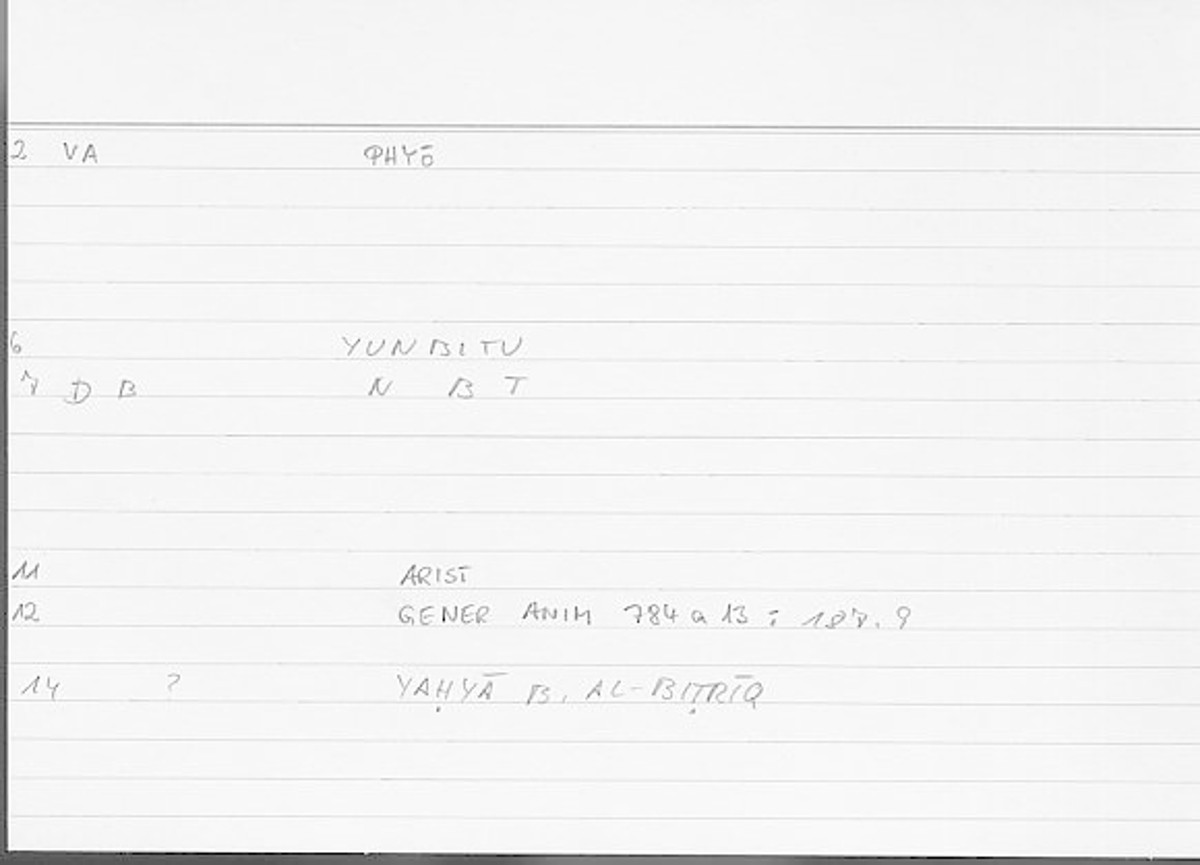 2 VA PHYŌ
6 YUNBITU
7 D B N B T
11 ARIST
12 GENER ANIM 784 a 13 : 187.9
14 ? YAḤYĀ B. AL-BIṬRĪQ